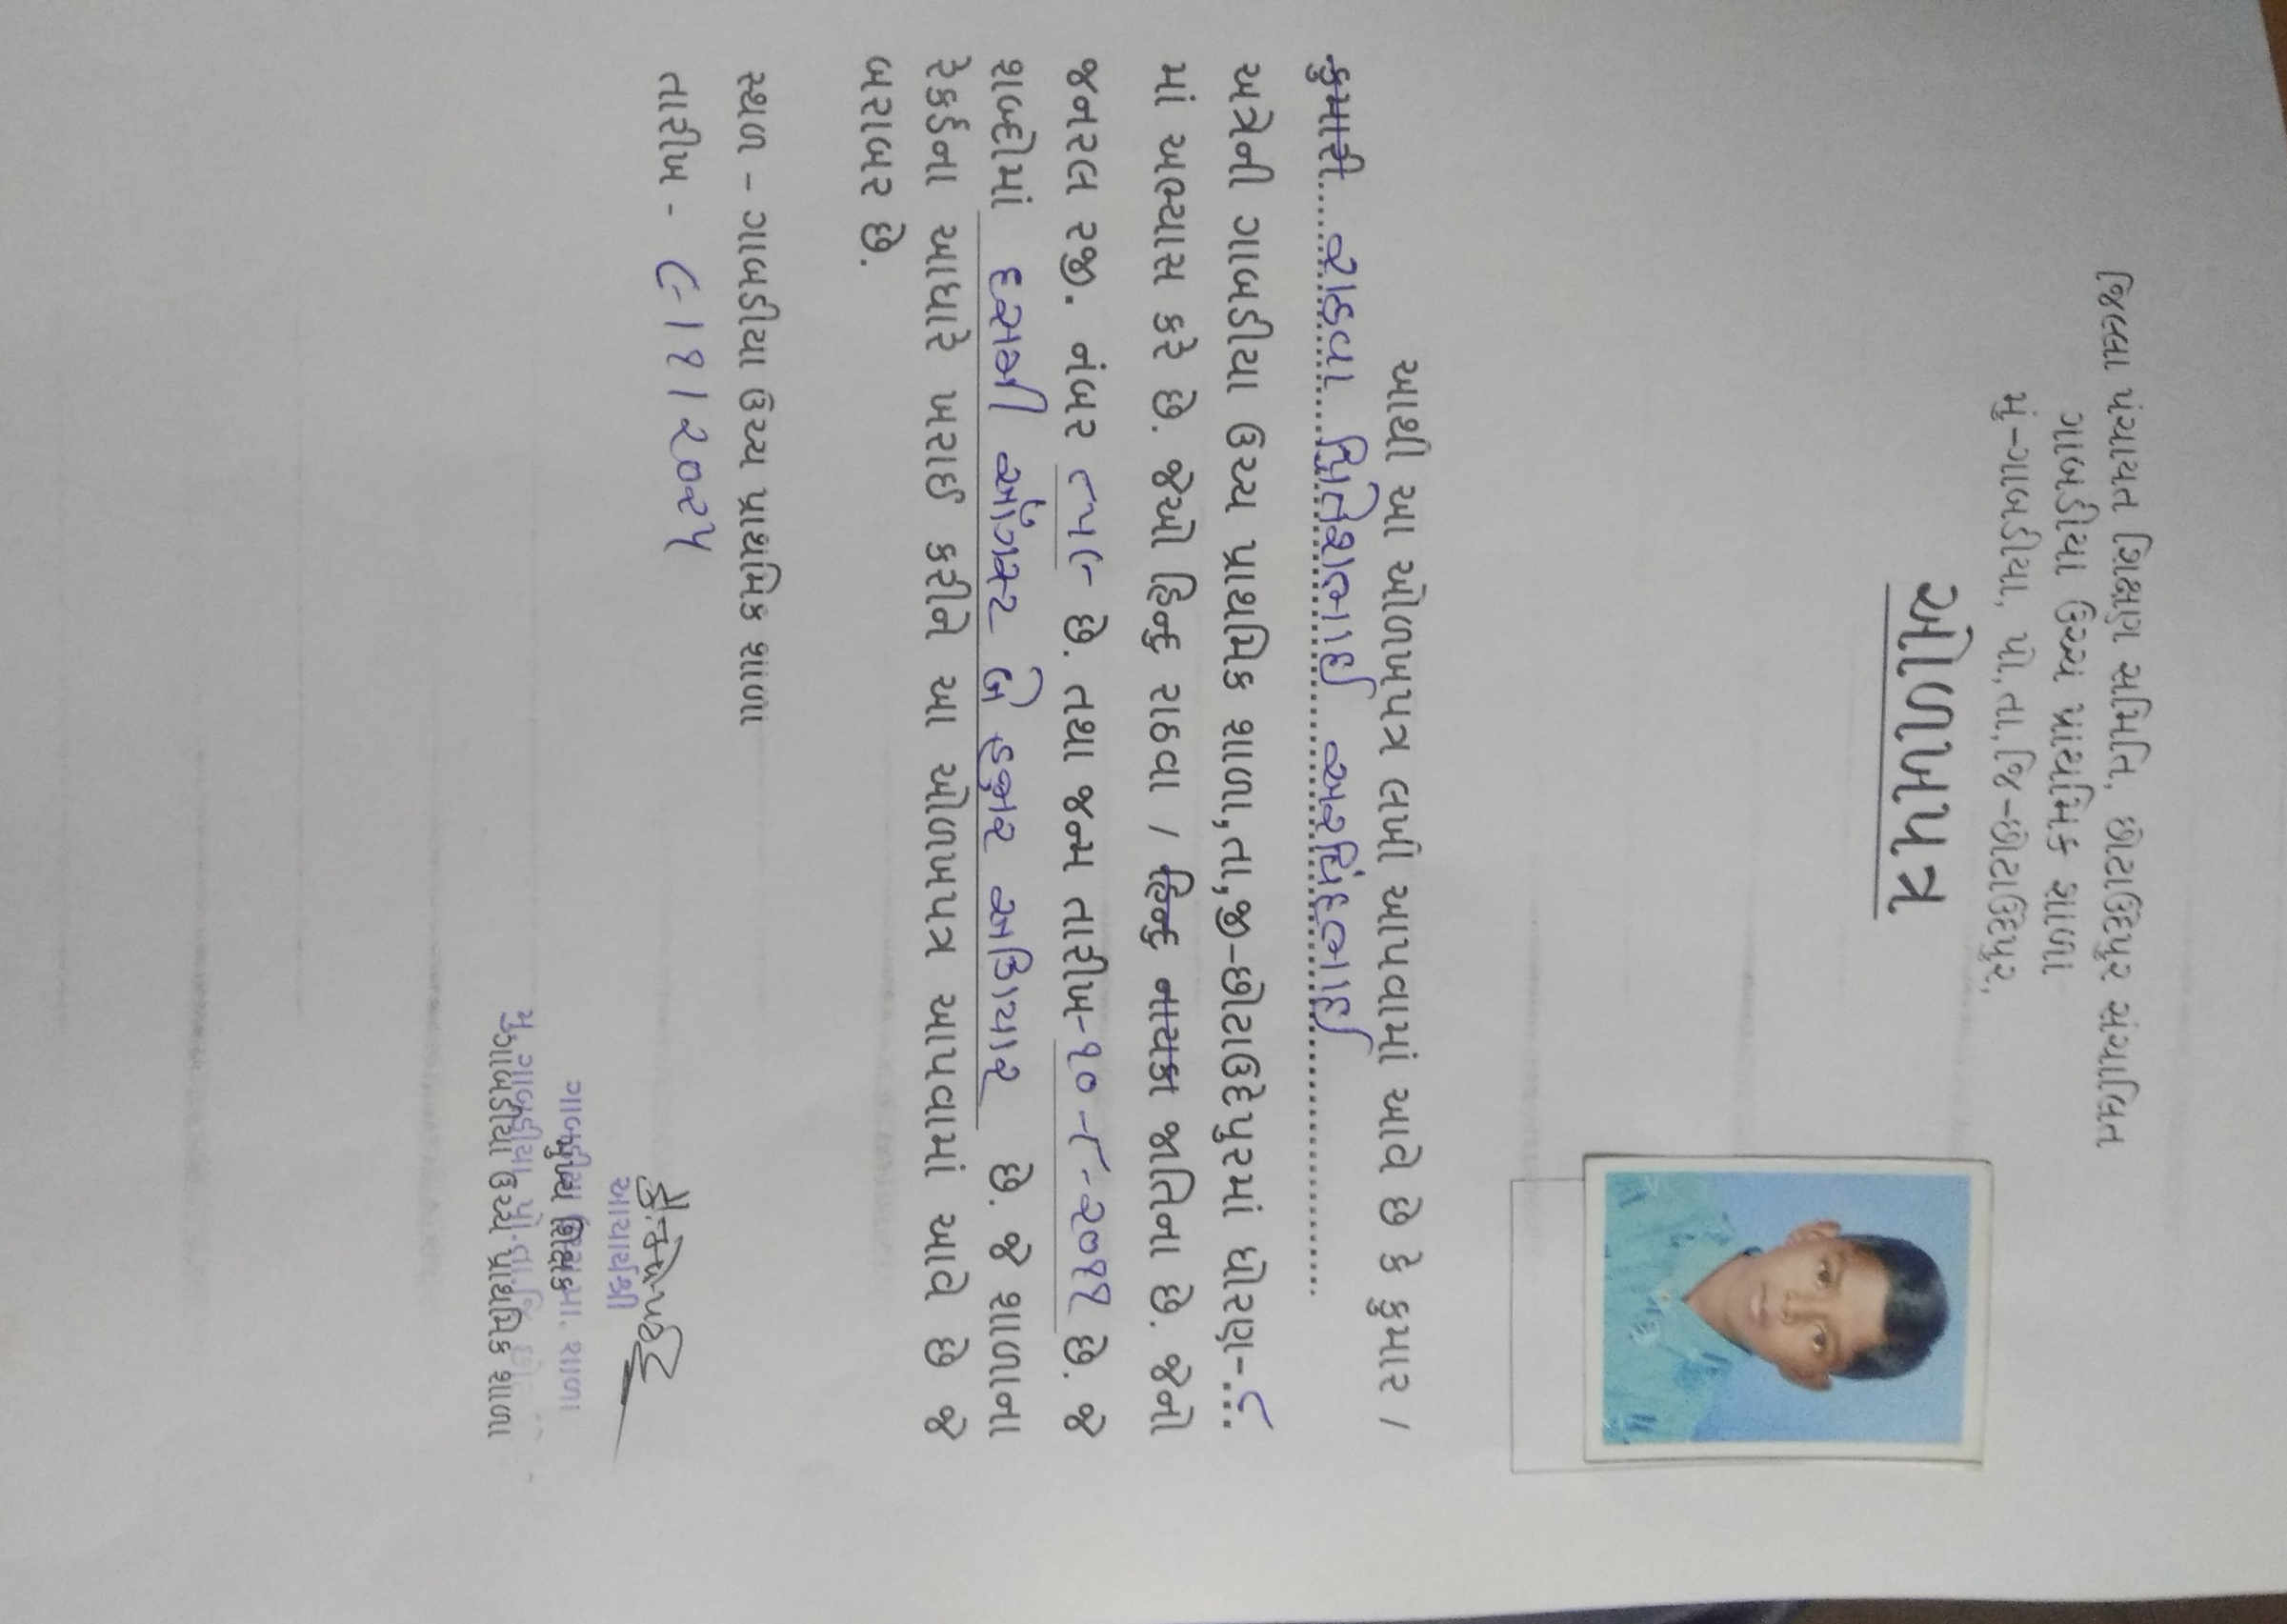 જિલ્લા પંચાયત શિક્ષણ સમિતિ, છોટાઉદેપુર સંચાલિત
ગાબડીયા ઉચ્ચ પ્રાથમિક શાળા
મું-ગાબડીયા, પો,તા,જિ-છોટાઉદેપુર,
ઓળખપત્ર
આથી આ ઓળખપત્ર લખી આપવામાં આવે છે કે કુમાર /
કુમારી..... રાઠવા મિતેશભાઈ અમરસિંહભાઈ
અત્રેની ગાબડીયા ઉચ્ચ પ્રાથમિક શાળા,તા,જી-છોટાઉદેપુરમાં ધોરણ-...૮
માં અભ્યાસ કરે છે. જેઓ હિન્દુ રાઠવા / હિન્દુ નાયકા જાતિના છે. જેનો
જનરલ રજી. નંબર ૮૫૯ છે. તથા જન્મ તારીખ-૧૦-૮-૨૦૧૧ છે. જે
શબ્દોમાં દસમી ઓગષ્ટ બે હજાર અગિયાર છે. જે શાળાના
રેકર્ડના આધારે ખરાઈ કરીને આ ઓળખપત્ર આપવામાં આવે છે જે
બરાબર છે.
સ્થળ - ગાબડીયા ઉચ્ચ પ્રાથમિક શાળા
તારીખ - ૯ । ૧ । ૨૦૨૫
આચાર્યશ્રી
મુખ્ય શિક્ષક
ગાબડીયા ઉચ્ચ પ્રાથમિક શાળા